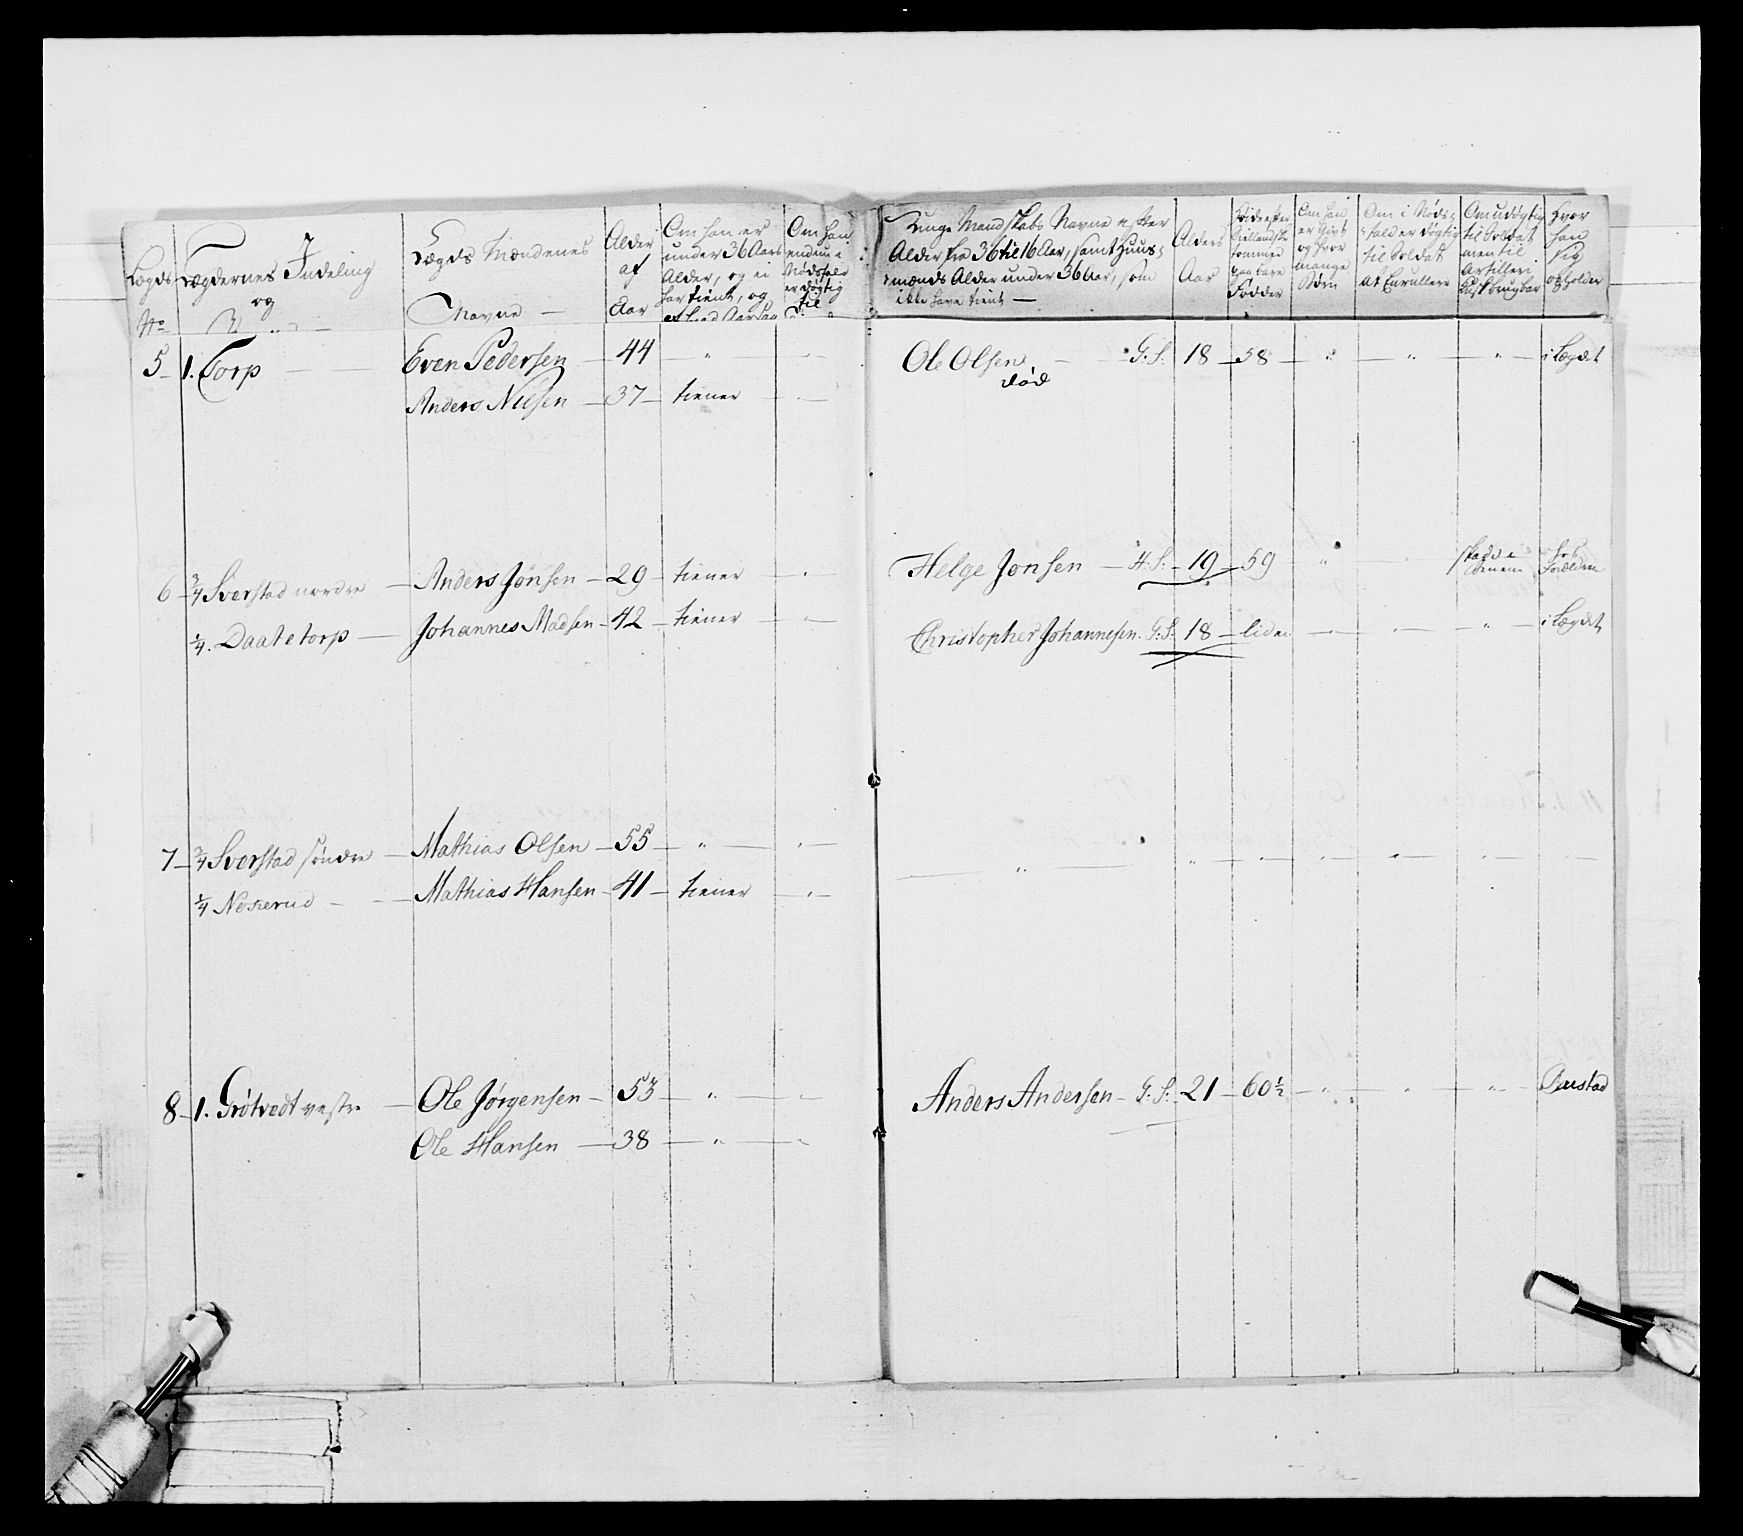 Lægds No
Lægdernes Indeling og
Lægds Mændenes Navne
Alder af Aar
Om han er under 36 Aars Alder, og ei har tient, og af hvad Aarsag
Om han endnu i Nødsfald er døgtig til
Unge Mandskabs Navne efter Alder fra 36 til 16 Aar, samt Huus-mænds Alder under 36 Aar, som ikke have tient
Alders Aar
Høide efter Siellandske tommer paa bare Fødder
Om han er Gift og hvor mange Børn
Om i Nøds-fald er døgtig til Soldat at Enrullere
Om udøgtig til Soldat men til Artilleri Kusk brugbar
Hvor han sig opholder
5 1. Torp Even Pedersen 44 " " Ole Olsen G.S. 18 58 " " " i Lægdet
død
Anders Nilsen 37 tiener "
6 3/4 Sverstad nordre Anders Jonsen 29 tiener " Helge Jonsen H.S. 19 59 " " skade i hos Forældrene
1/4. Daatetorp Johannes Madsen 42 tiener " Christopher Johannesen G.S. 18 liden " " " i Lægdet
7 3/4 Sverstad søndre Mathias Olsen 55 " " " " " " " " "
1/4 Neserud Mathias Hansen 41 tiener "
8 1. Grøtvedt vestre Ole Jørgensen 53 " " Anders Andersen G.S. 21 60 1/2 " " "
Ole Hansen 38 " "